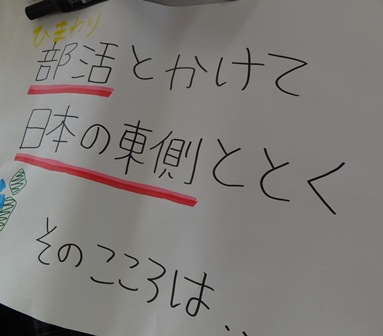 ひまわり
部活とかけて
日本の東側ととく
そのこころは‥